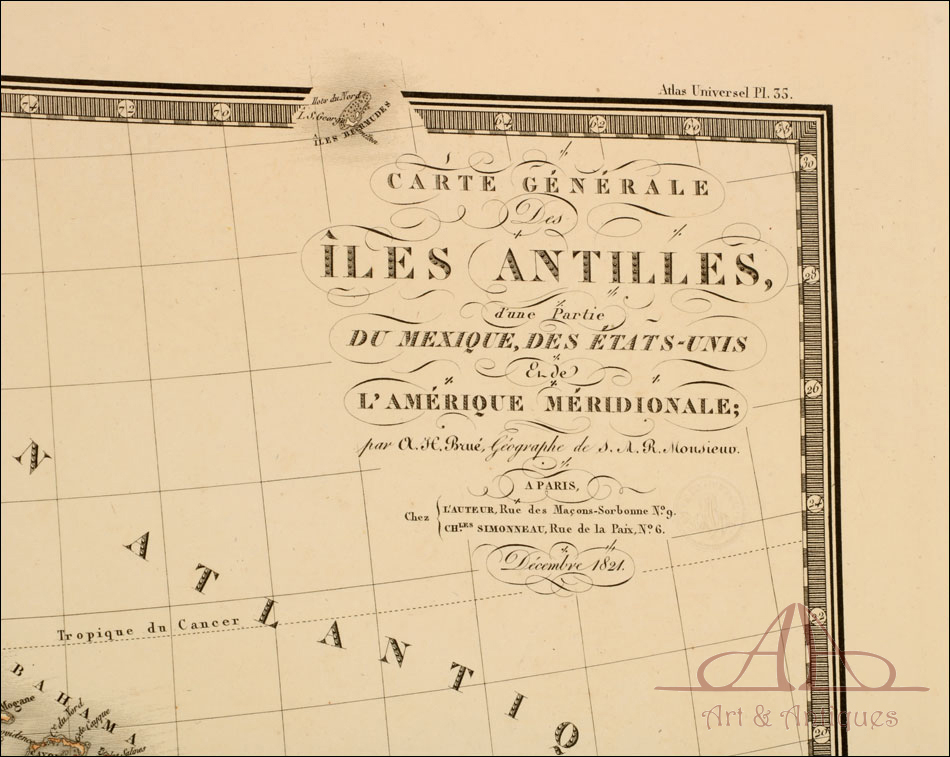 Atlas Universel Pl. 35.
74 72 70 64 62 60 58
Ilots du Nord
I. St. George
ÎLES BERMUDES
CARTE GÉNÉRALE
Des
ÎLES ANTILLES,
d'une Partie
DU MEXIQUE, DES ÉTATS-UNIS
Et de
L'AMÉRIQUE MÉRIDIONALE;
par A. H. Brué, Géographe de S. A. R. Monsieur.
A PARIS,
Chez
L'AUTEUR, Rue des Maçons-Sorbonne No. 9.
CHLES SIMONNEAU, Rue de la Paix, No. 6.
Décembre 1821.
30
28
26
24
22
20
N
ATLANTIQ
Tropique du Cancer
BAHAMA
Mogane
C. du Nord
Art & Antiques